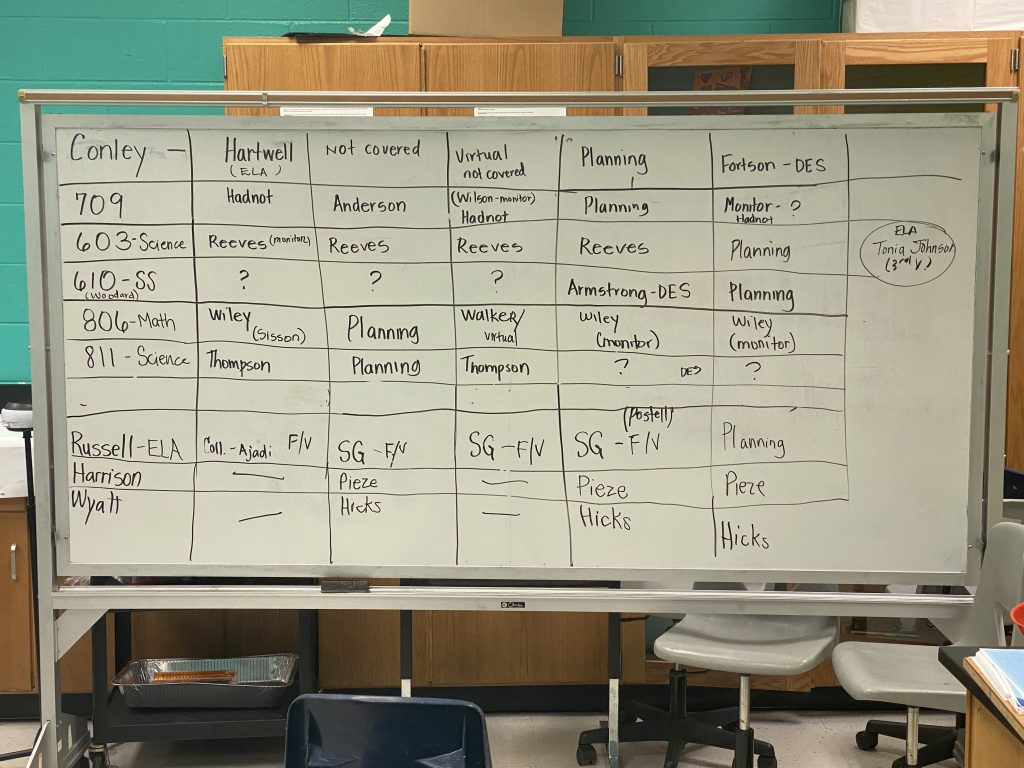 Conley — Hartwell Not covered Virtual Planning Fortson - DES
(ELA) not covered
709 Hadnot Anderson (Wilson-monitor) Planning Monitor - ?
Hadnot Hadnot
603-Science Reeves (monitor) Reeves Reeves Reeves Planning
ELA
Tonia Johnson
(3rd V)
610-SS ? ? ? Armstrong-DES Planning
(Woodard)
806-Math Wiley Planning Walker/ Wiley Wiley
(Sisson) virtual (monitor) (monitor)
811 - Science Thompson Planning Thompson ? DES ?
(Postell)
Russell-ELA Coll.-Ajadi F/V SG - F/V SG - F/V SG - F/V Planning
Harrison — Pieze — Pieze Pieze
Wyatt — Hicks — Hicks Hicks